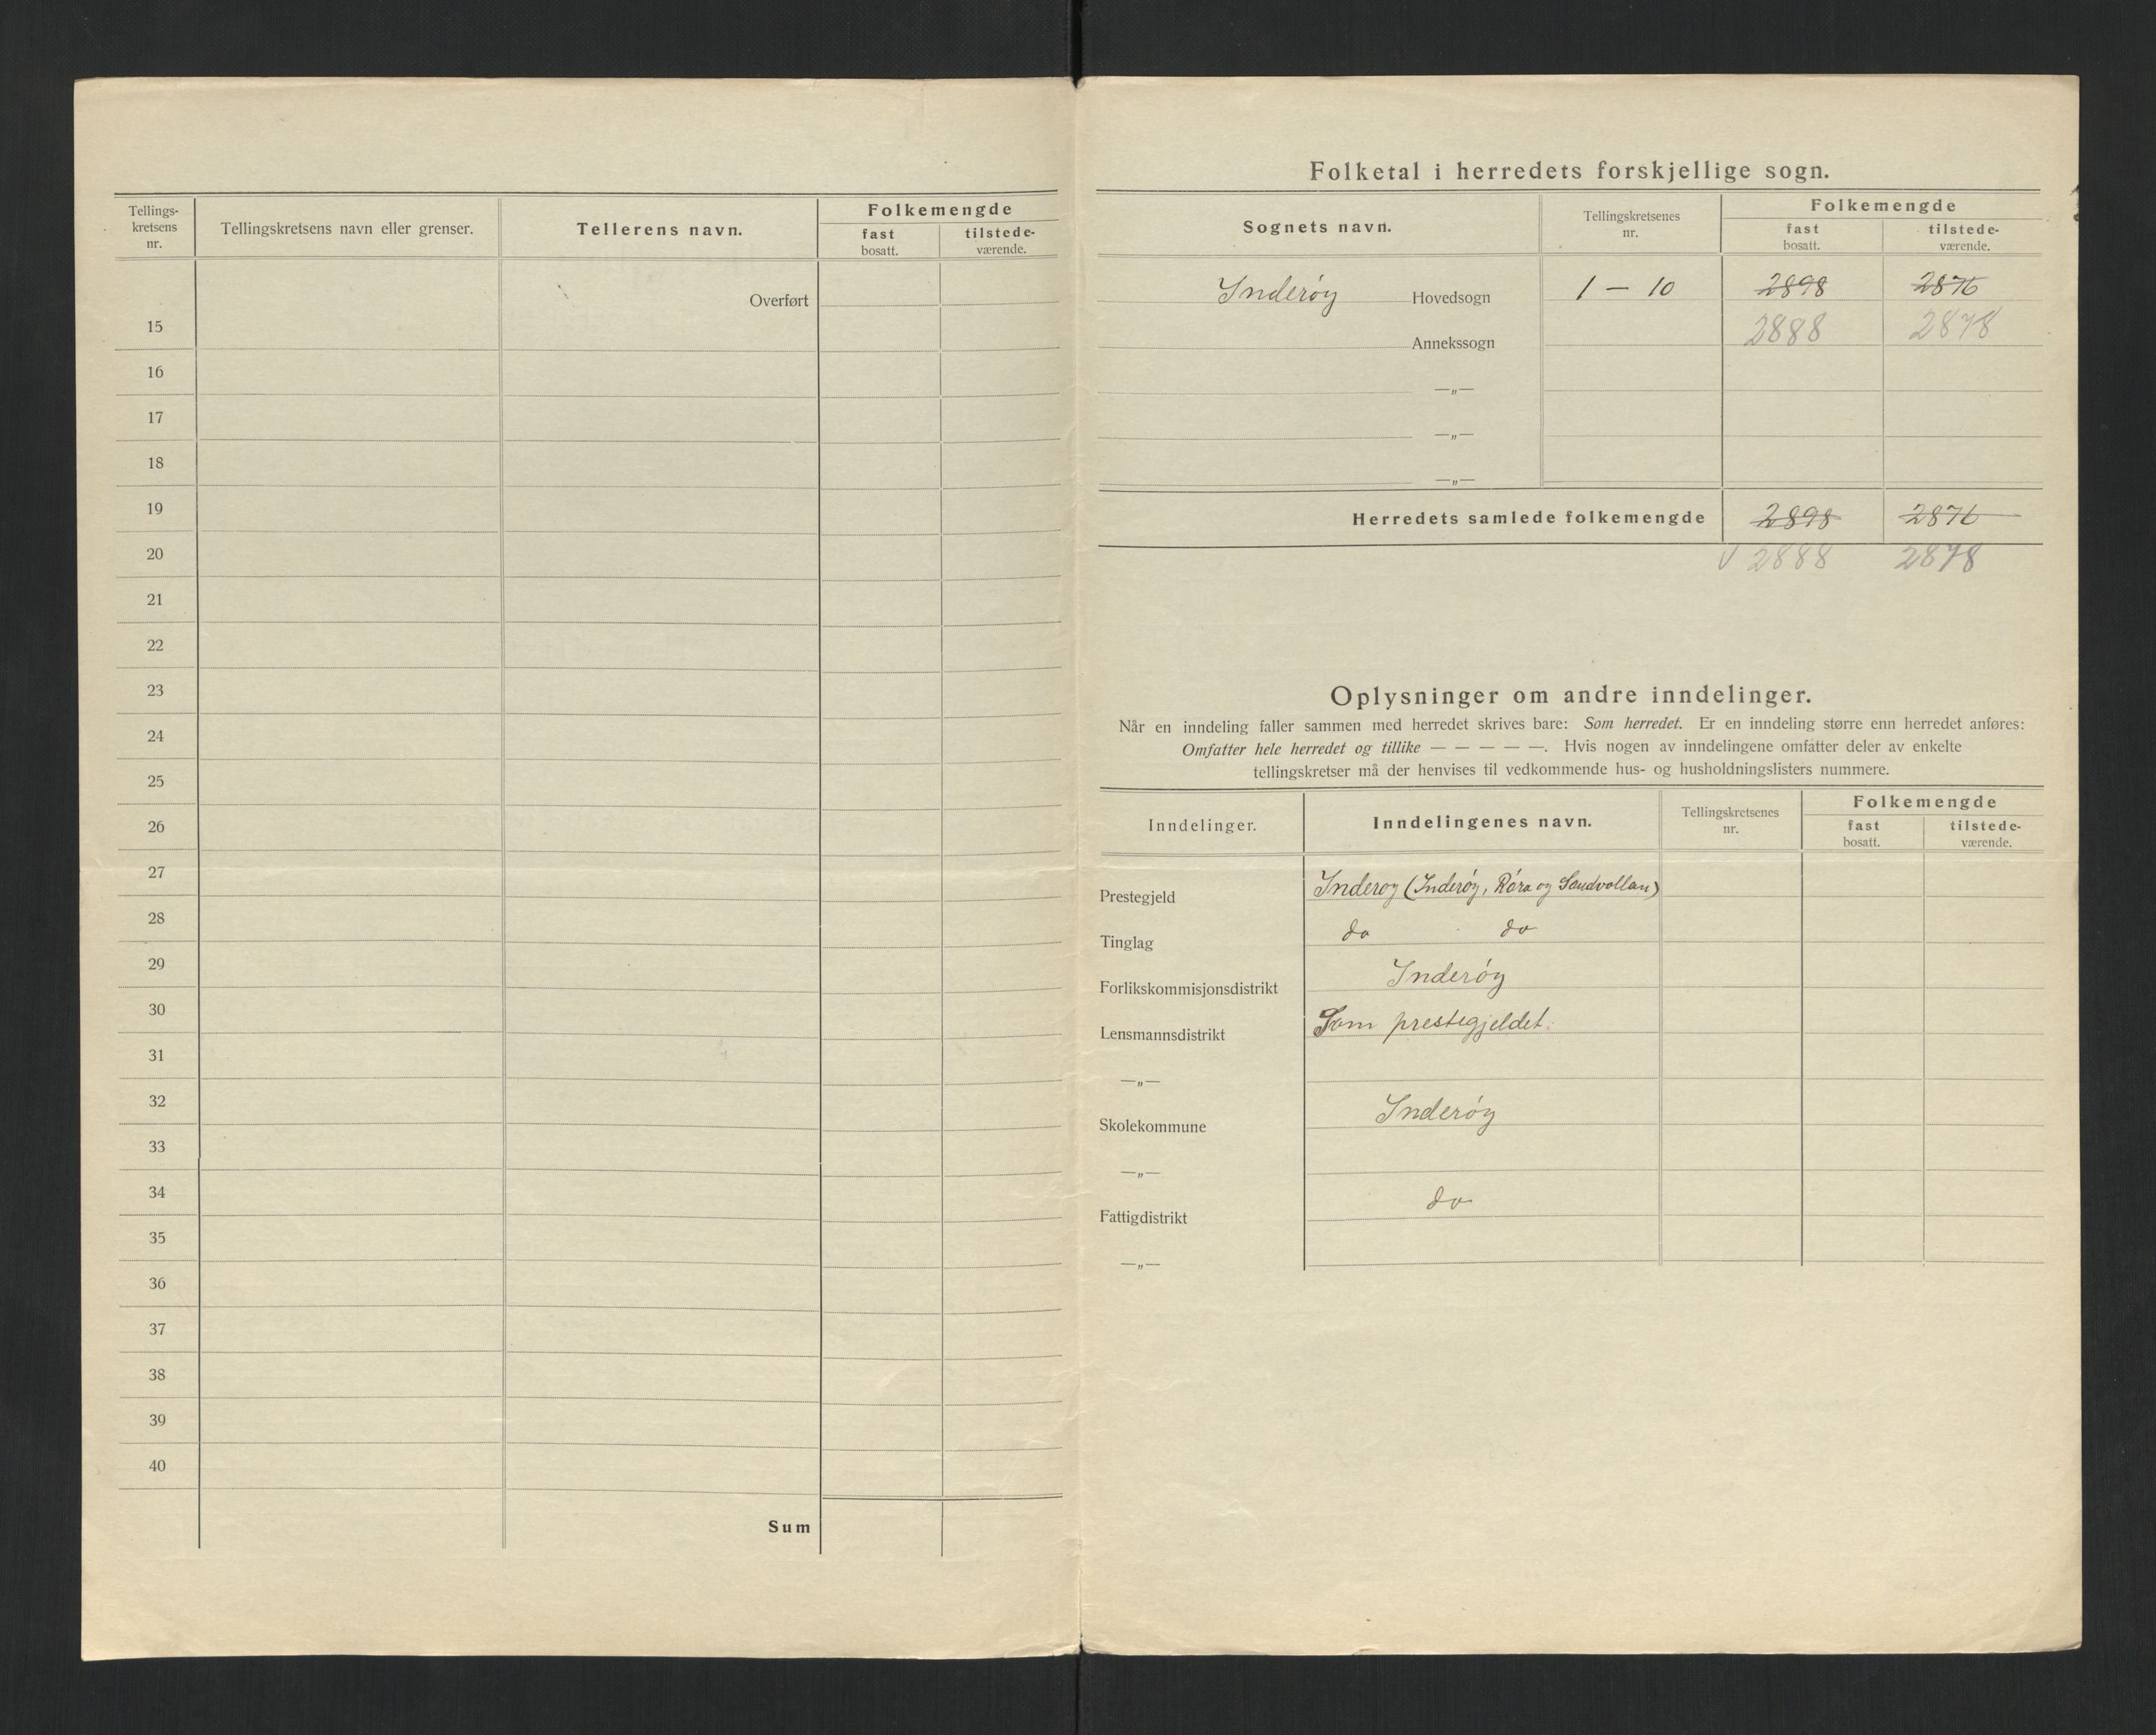 Tellings-
kretsens
nr.
Tellingskretsens navn eller grenser.
Tellerens navn.
Folkemengde
fast
bosatt.
tilstede-
værende.
Overført
15
16
17
18
19
20
21
22
23
24
25
26
27
28
29
30
31
32
33
34
35
36
37
38
39
40
Sum
Folketal i herredets forskjellige sogn.
Sognets navn.
Tellingskretsenes
nr.
Folkemengde
fast
bosatt.
tilstede-
værende.
Inderøy Hovedsogn 1 — 10 2898 2876
Annekssogn 2888 2878
—„—
—„—
—„—
Herredets samlede folkemengde 2898 2876
√ 2888 2878
Oplysninger om andre inndelinger.
Når en inndeling faller sammen med herredet skrives bare: Som herredet. Er en inndeling større enn herredet anføres:
Omfatter hele herredet og tillike — — — — —. Hvis nogen av inndelingene omfatter deler av enkelte
tellingskretser må der henvises til vedkommende hus- og husholdningslisters nummere.
Inndelinger.
Inndelingenes navn.
Tellingskretsenes
nr.
Folkemengde
fast
bosatt.
tilstede-
værende.
Prestegjeld Inderoy (Inderøy, Røra og Sandvollan)
Tinglag do do
Forlikskommisjonsdistrikt Inderøy
Lensmannsdistrikt Som prestegjeldet.
—„—
Skolekommune Inderøy
—„—
Fattigdistrikt do
—„—